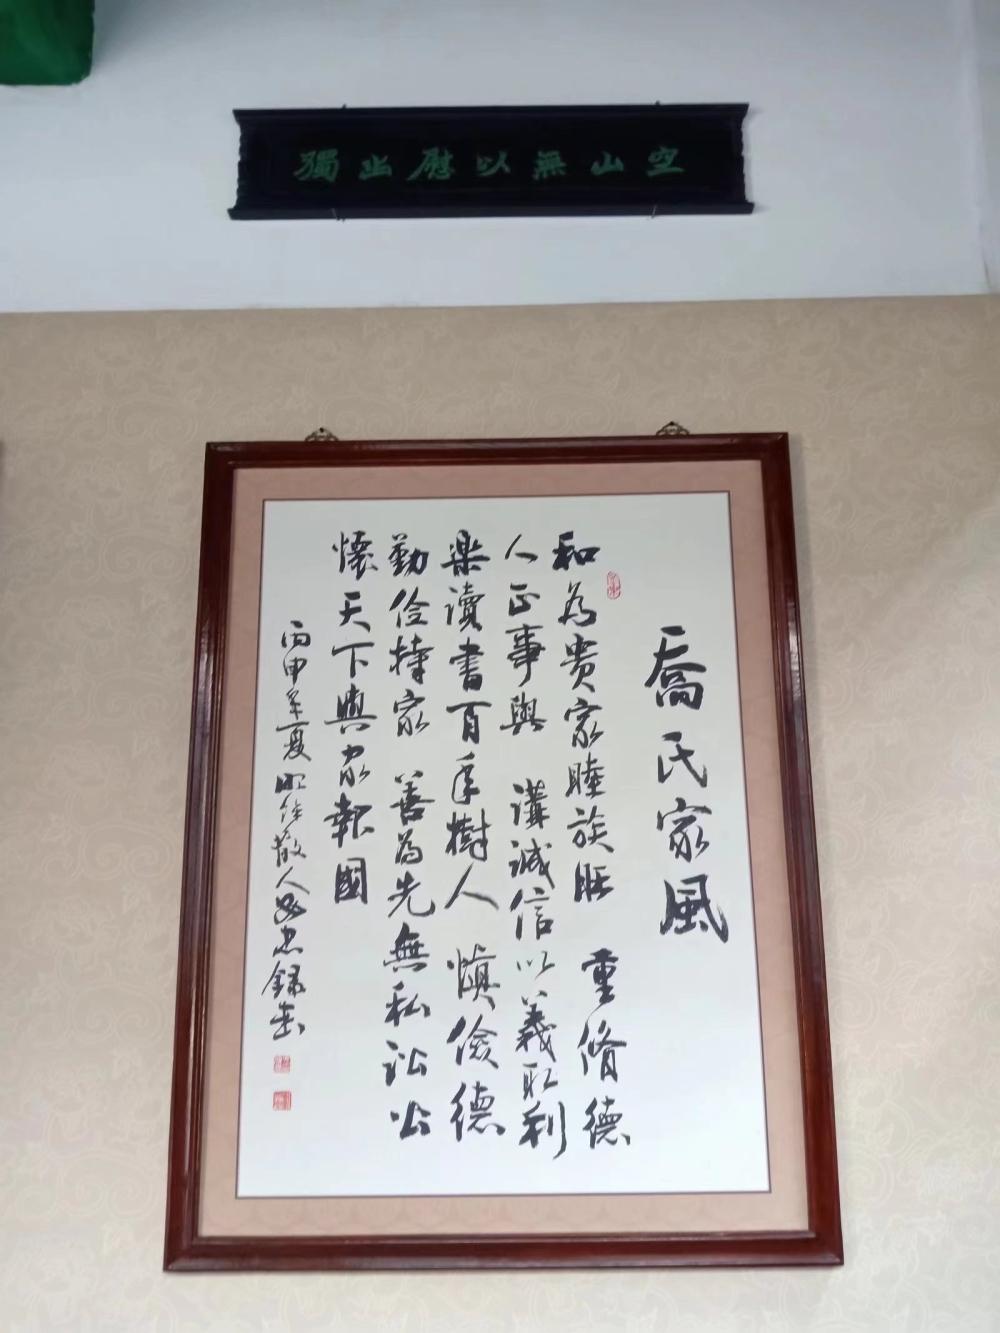 空山無以慰幽獨
喬氏家風
和為贵家睦族旺 重脩德
人正事興 講誠信以義取利
樂讀書百年樹人 慎儉德
勤俭持家 善為先無私訟公
懷天下興家報國
丙申年夏
散人
錄书